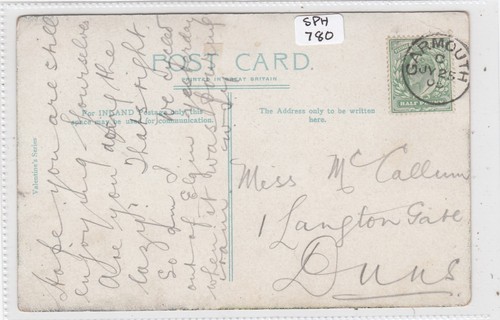 SPH
780
POST CARD.
PRINTED IN GREAT BRITAIN.
For INLAND Postage only this
space may be used for communication.
The Address only to be written
here.
Valentine's Series
GARMOUTH
C
JY 25
HALF PENNY
Hope you are still
enjoying yourselves
Are you doing the
lazy? That's right
So am I
out of Elgin yesterday
when it was
Mess McCallum
1 Langton Gate
Duns